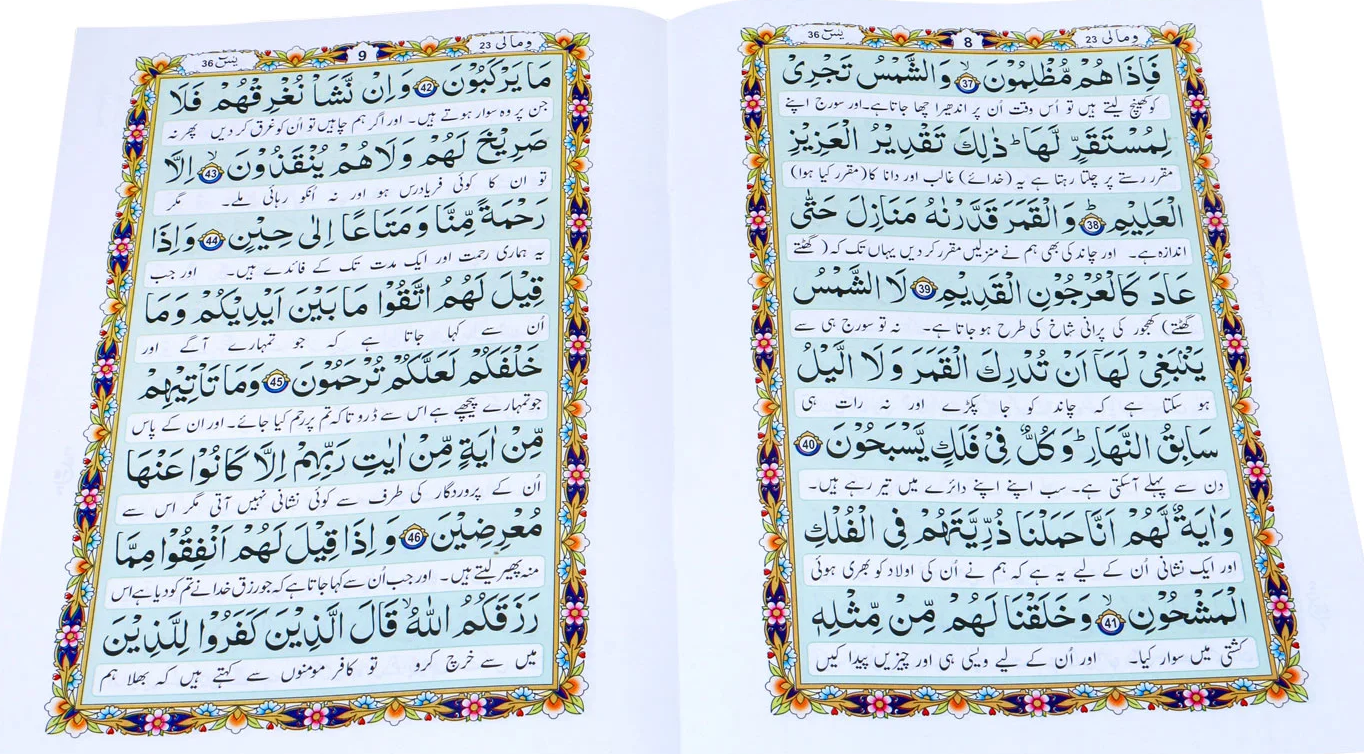 ومالی 23
8
یٰسٓ 36
فَاِذَا هُمْ مُّظْلِمُوْنَ ۙ 37 وَالشَّمْسُ تَجْرِیْ
کو کھینچ لیتے ہیں تو اُس وقت اُن پر اندھیرا چھا جاتا ہے۔ اور سورج اپنے
لِمُسْتَقَرٍّ لَّهَا ؕ ذٰلِكَ تَقْدِیْرُ الْعَزِیْزِ
مقرر رستے پر چلتا رہتا ہے یہ (خدائے) غالب اور دانا کا (مقرر کیا ہوا)
الْعَلِیْمِ ؕ 38 وَالْقَمَرَ قَدَّرْنٰهُ مَنَازِلَ حَتّٰی
اندازہ ہے۔ اور چاند کی بھی ہم نے منزلیں مقرر کر دیں یہاں تک کہ ( گھٹتے
عَادَ كَالْعُرْجُوْنِ الْقَدِیْمِ 39 لَا الشَّمْسُ
گھٹتے) کھجور کی پرانی شاخ کی طرح ہو جاتا ہے۔ نہ تو سورج ہی سے
یَنْۢبَغِیْ لَهَاۤ اَنْ تُدْرِكَ الْقَمَرَ وَلَا الَّیْلُ
ہو سکتا ہے کہ چاند کو جا پکڑے اور نہ رات ہی
سَابِقُ النَّهَارِ ؕ وَكُلٌّ فِیْ فَلَكٍ یَّسْبَحُوْنَ 40
دن سے پہلے آسکتی ہے۔ سب اپنے اپنے دائرے میں تیر رہے ہیں۔
وَاٰیَةٌ لَّهُمْ اَنَّا حَمَلْنَا ذُرِّیَّتَهُمْ فِی الْفُلْكِ
اور ایک نشانی اُن کے لیے یہ ہے کہ ہم نے اُن کی اولاد کو بھری ہوئی
الْمَشْحُوْنِ ۙ 41 وَخَلَقْنَا لَهُمْ مِّنْ مِّثْلِهٖ
کشتی میں سوار کیا۔ اور اُن کے لیے ویسی ہی اور چیزیں پیدا کیں
ومالی 23
9
یٰسٓ 36
مَا یَرْكَبُوْنَ 42 وَاِنْ نَّشَاْ نُغْرِقْهُمْ فَلَا
جن پر وہ سوار ہوتے ہیں۔ اور اگر ہم چاہیں تو اُن کو غرق کر دیں پھر نہ
صَرِیْخَ لَهُمْ وَلَا هُمْ یُنْقَذُوْنَ ۙ 43 اِلَّا
تو ان کا کوئی فریادرس ہو اور نہ اُنکو رہائی ملے۔ مگر
رَحْمَةً مِّنَّا وَمَتَاعًا اِلٰی حِیْنٍ 44 وَاِذَا
یہ ہماری رحمت اور ایک مدت تک کے فائدے ہیں۔ اور جب
قِیْلَ لَهُمُ اتَّقُوْا مَا بَیْنَ اَیْدِیْكُمْ وَمَا
اُن سے کہا جاتا ہے کہ جو تمہارے آگے اور
خَلْفَكُمْ لَعَلَّكُمْ تُرْحَمُوْنَ 45 وَمَا تَاْتِیْهِمْ
جو تمہارے پیچھے ہے اس سے ڈرو تاکہ تم پر رحم کیا جائے۔ اور ان کے پاس
مِّنْ اٰیَةٍ مِّنْ اٰیٰتِ رَبِّهِمْ اِلَّا كَانُوْا عَنْهَا
اُن کے پروردگار کی طرف سے کوئی نشانی نہیں آتی مگر اس سے
مُعْرِضِیْنَ 46 وَاِذَا قِیْلَ لَهُمْ اَنْفِقُوْا مِمَّا
منہ پھیر لیتے ہیں۔ اور جب اُن سے کہا جاتا ہے کہ جو رزق خدا نے تم کو دیا ہے اس
رَزَقَكُمُ اللّٰهُ ۙ قَالَ الَّذِیْنَ كَفَرُوْا لِلَّذِیْنَ
میں سے خرچ کرو تو کافر مومنوں سے کہتے ہیں کہ بھلا ہم